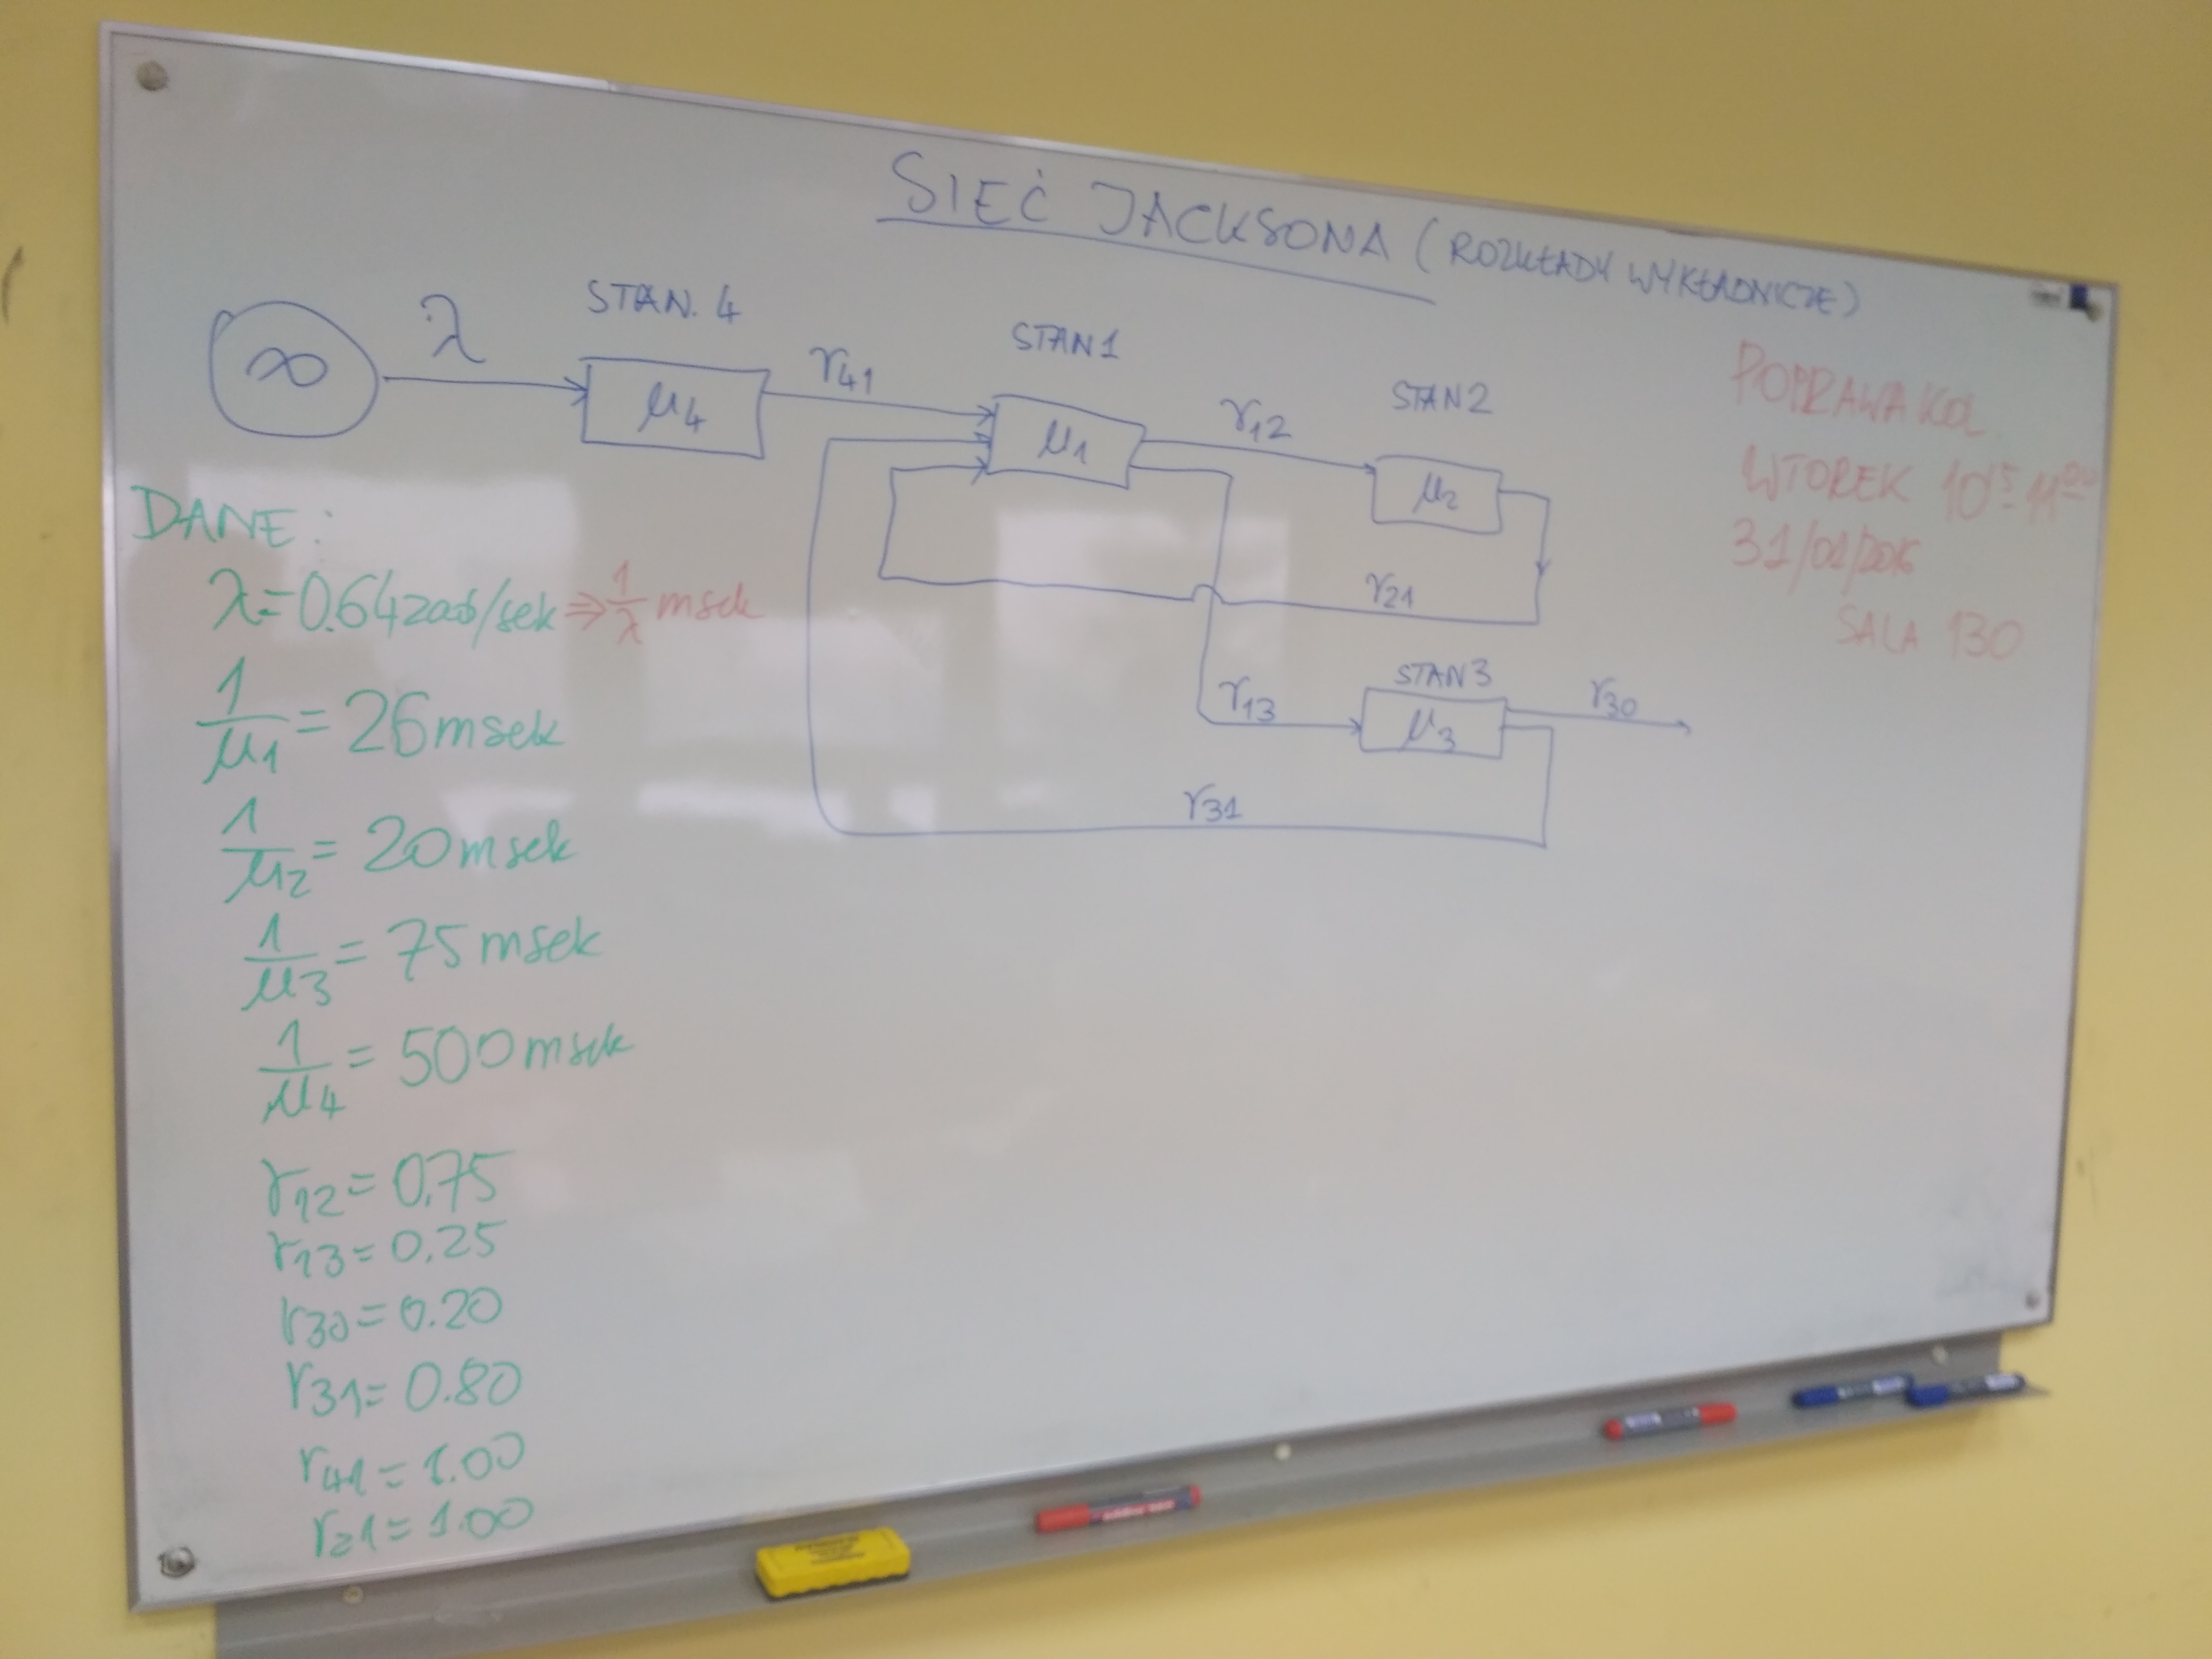 SIEĆ JACKSONA (ROZKŁADY WYKŁADNICZE)
∞
λ
STAN. 4
μ4
r41
STAN1
μ1
r12
STAN2
μ2
r21
STAN3
r13
μ3
r30
r31
POPRAWA KOL.
WTOREK 10¹⁵ 11⁰⁰
SALA 130
DANE:
λ=0.64 zad/sek ⇒ 1/λ msek
1/μ1 = 26 msek
1/μ2 = 20 msek
1/μ3 = 75 msek
1/μ4 = 500 msek
r12 = 0.75
r13 = 0.25
r30 = 0.20
r31 = 0.80
r41 = 1.00
r21 = 1.00